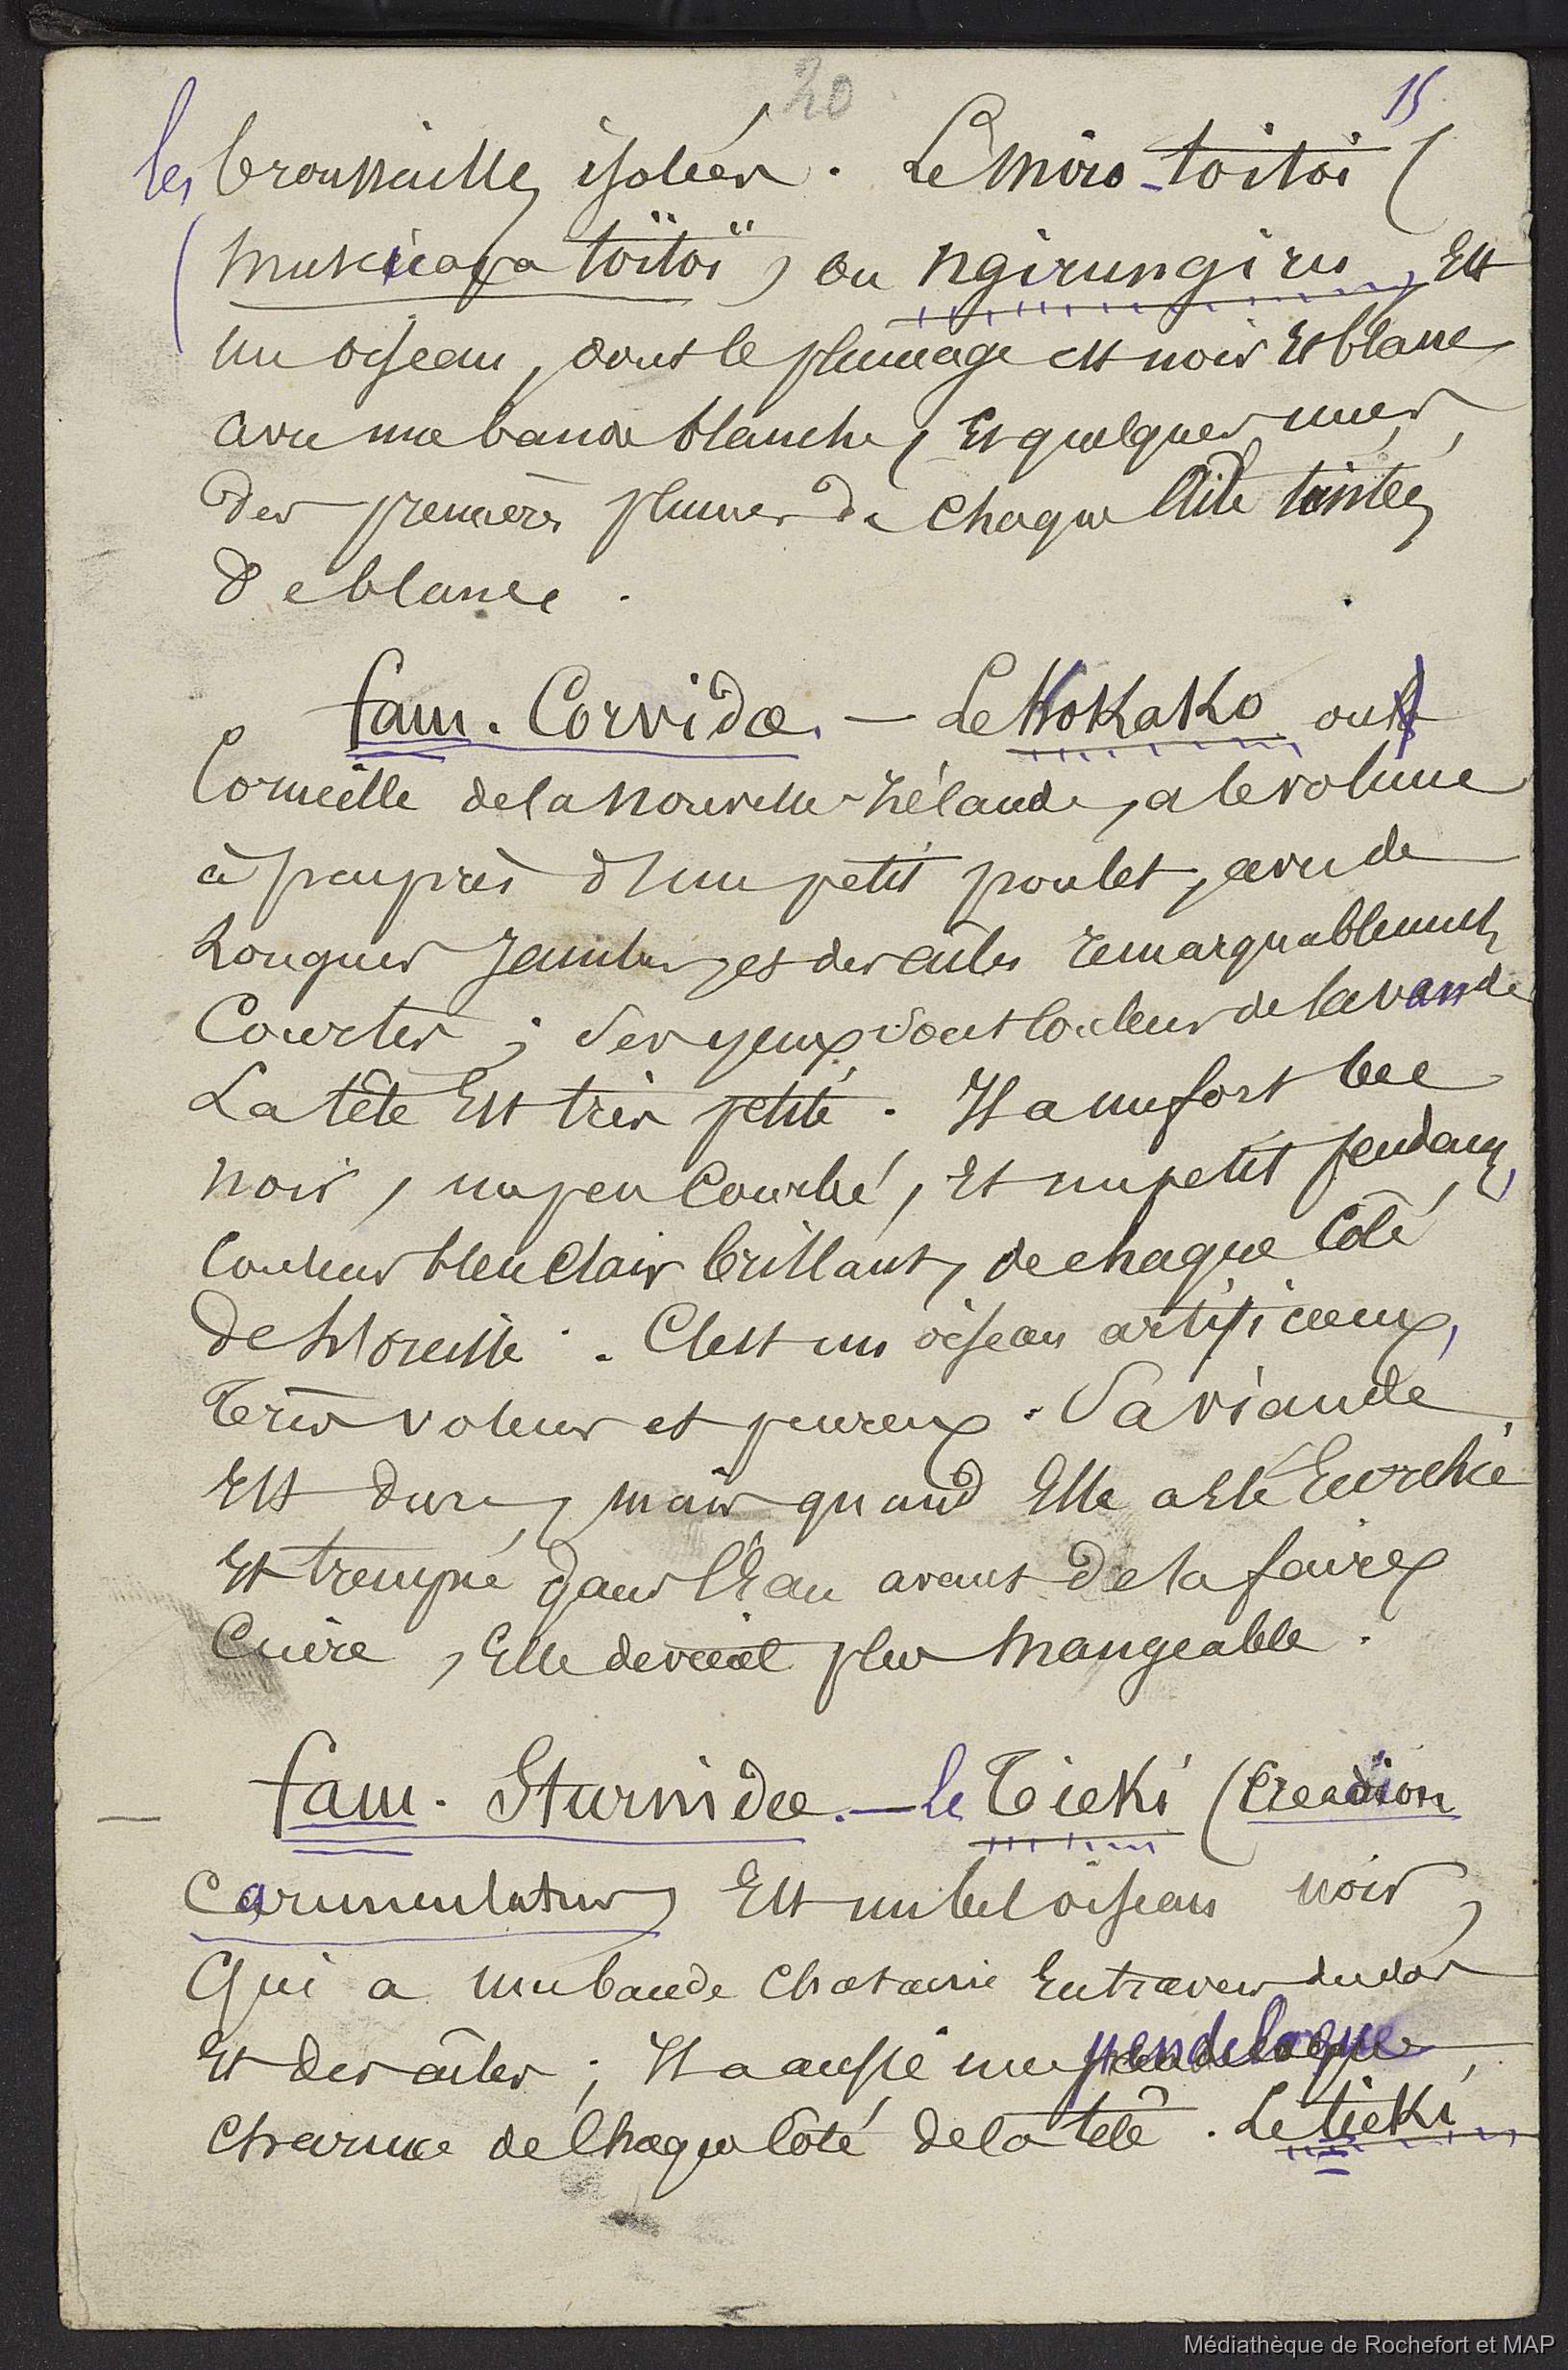 20
15
les broussailles isolées. Le Miro-toitoi (
(Muscicapa toïtoï) ou ngirungiru, Est
un oiseau, dont le plumage est noir Et blanc
avec une bande blanche, Et quelques unes,
des premières plumes de chaque Aile teintées
de blanc.
fam. Corvidæ. — Le Kokako ou
Corneille de la Nouvelle-Zélande, a le volume
à peu près d'un petit poulet, avec de
Longues Jambes, et des ailes remarquablement
Courtes; Ses yeux sont couleur de lavande
La tête Est très petite. Il a un fort bec
noir, un peu Courbé, Et un petit pendant,
Couleur bleu Clair brillant, de chaque Côté
de l'oreille. C'est un oiseau artificieux,
Très voleur et peureux. Sa viande
Est dure, mais quand Elle a Eté Ecorchée
Et trempée dans l'Eau avant de la faire
Cuire, Elle devient plus Mangeable.
fam. Sturnidæ. — le Tieki (Creadion
carunculatus) Est un bel oiseau noir,
Qui a une bande chatain En travers du dos
Et des ailes; Il a aussi une pendeloque
charnue de Chaque Côté de la tête. Le tieki
Médiathèque de Rochefort et MAP